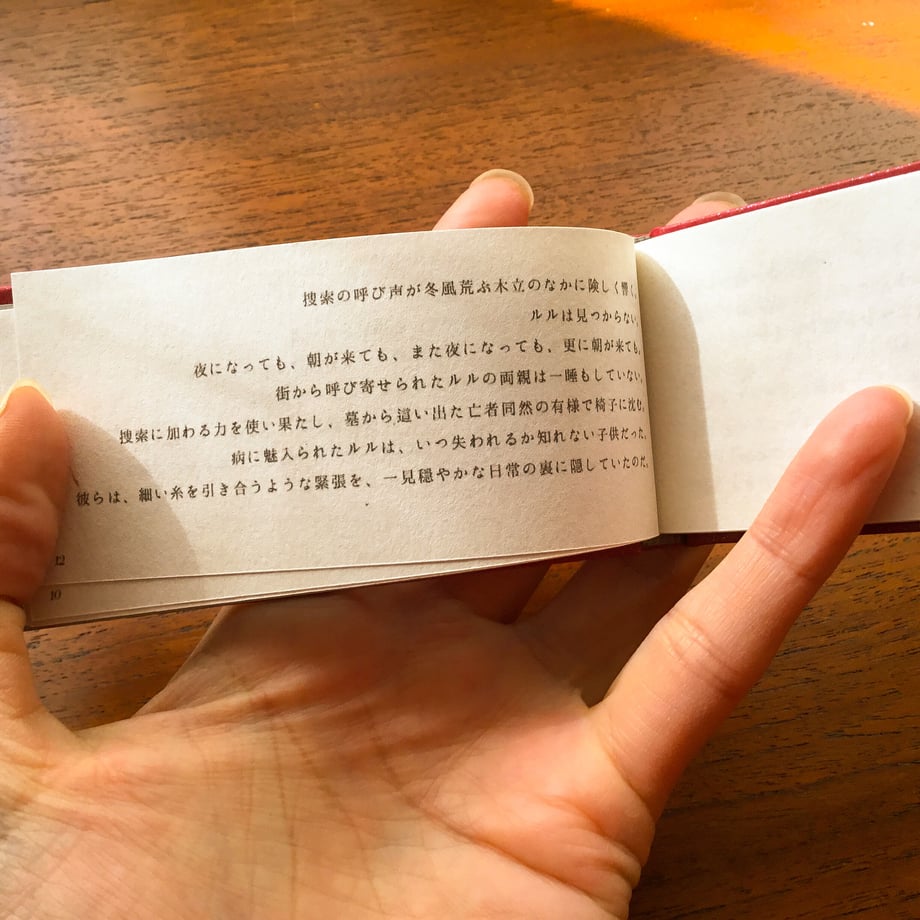 捜索の呼び声が冬風荒ぶ木立のなかに険しく響く。
ルルは見つからない。
夜になっても、朝が来ても、また夜になっても、更に朝が来ても。
街から呼び寄せられたルルの両親は一睡もしていない。
捜索に加わる力を使い果たし、墓から這い出た亡者同然の有様で椅子に沈む。
病に魅入られたルルは、いつ失われるか知れない子供だった。
彼らは、細い糸を引き合うような緊張を、一見穏やかな日常の裏に隠していたのだ。
12
10